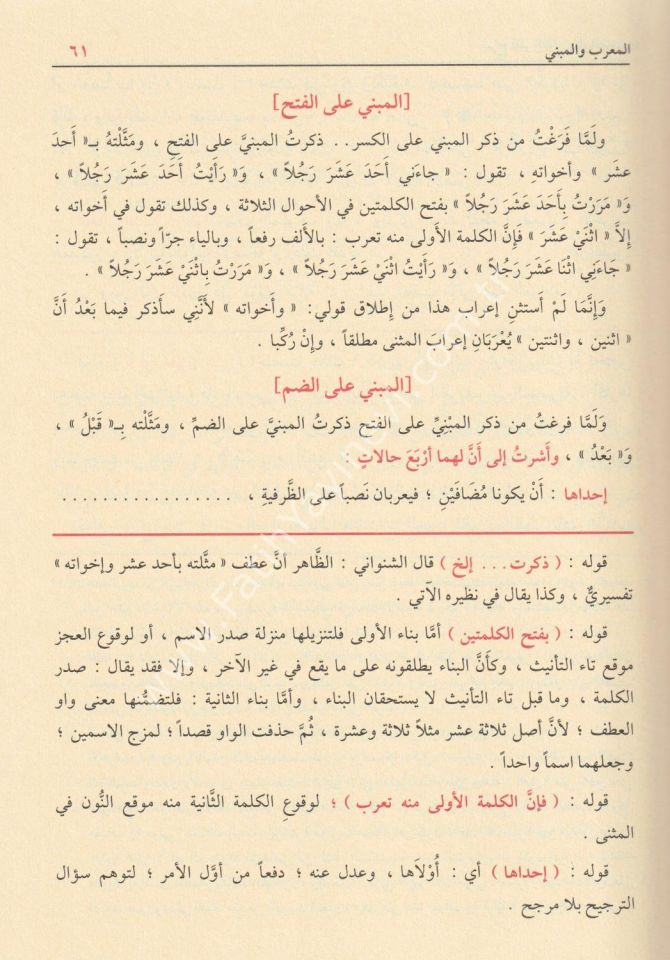 المعرب والمبني ٦١
[المبني على الفتح]
ولَمَّا فَرَغْتُ من ذكر المبني على الكسر.. ذكرتُ المبنيَّ على الفتحِ ، ومَثَّلْتهُ بـ« أَحدَ
عشَر » وأخواتهِ ، تقول : « جاءَني أَحَدَ عَشَرَ رَجُلاً » ، وَ« رَأَيْتُ أَحَدَ عَشَرَ رَجُلاً » ،
وَ« مَرَرْتُ بِأَحَدَ عَشَرَ رَجُلاً » بفتح الكلمتين في الأحوال الثلاثة ، وكذلك تقول في أخواته ،
إلاَّ « اثْنَيْ عَشَرَ » فَإِنَّ الكلمة الأَولى منه تعرب : بالأَلف رفعاً ، وبالياء جرّاً ونصباً ، تقول :
« جَاءَنِي اثْنَا عَشَرَ رَجُلاً » ، وَ« رَأَيْتُ اثْنَيْ عَشَرَ رَجُلاً » ، وَ« مَرَرْتُ بِاثْنَيْ عَشَرَ رَجُلاً » .
وَإِنَّمَا لَمْ أَستثنِ إعراب هذا من إطلاق قولي: « وأخواته » لأنَّنِي سأذكر فيما بَعْدُ أَنَّ
« اثنين ، واثنتين » يُعْرَبَانِ إعرابَ المثنى مطلقاً ، وإنْ رُكِّبا .
[المبني على الضم]
وَلَمَّا فرغتُ من ذكر المبْنِيِّ على الفتح ذكرتُ المبنيَّ على الضمِّ ، ومثَّلْته بـ« قَبْلُ » ،
وَ« بَعْدُ » ، وأَشرتُ إلى أَنَّ لهما أَرْبَعَ حالاتٍ :
إحداها : أَنْ يكونا مُضَافَيْنِ ؛ فيعربان نَصباً على الظَّرفيةِ ، .................
قوله : ( ذكرت... إلخ ) قال الشنواني : الظَّاهر أنَّ عطف « مثَّلته بأحد عشر وإخواته »
تفسيريٌّ ، وكذا يقال في نظيره الآتي .
قوله : ( بفتح الكلمتين ) أمَّا بناء الأولى فلتنزيلها منزلة صدر الاسم ، أو لوقوع العجز
موقع تاء التأنيث ، وكأنَّ البناء يطلقونه على ما يقع في غير الآخر ، وإلا فقد يقال : صدر
الكلمة ، وما قبل تاء التأنيث لا يستحقان البناء ، وأمَّا بناء الثانية : فلتضمُّنها معنى واو
العطف ؛ لأنَّ أصل ثلاثة عشر مثلاً ثلاثة وعشرة ، ثُمَّ حذفت الواو قصداً ؛ لمزج الاسمين ؛
وجعلهما اسماً واحداً .
قوله : ( فإنَّ الكلمة الأولى منه تعرب ) ؛ لوقوعِ الكلمة الثَّانية منه موقع النُّون في
المثنى .
قوله : ( إحداها ) أي : أُوْلاَها ، وعدل عنه ؛ دفعاً من أوَّل الأمر ؛ لتوهم سؤال
الترجيح بلا مرجح .